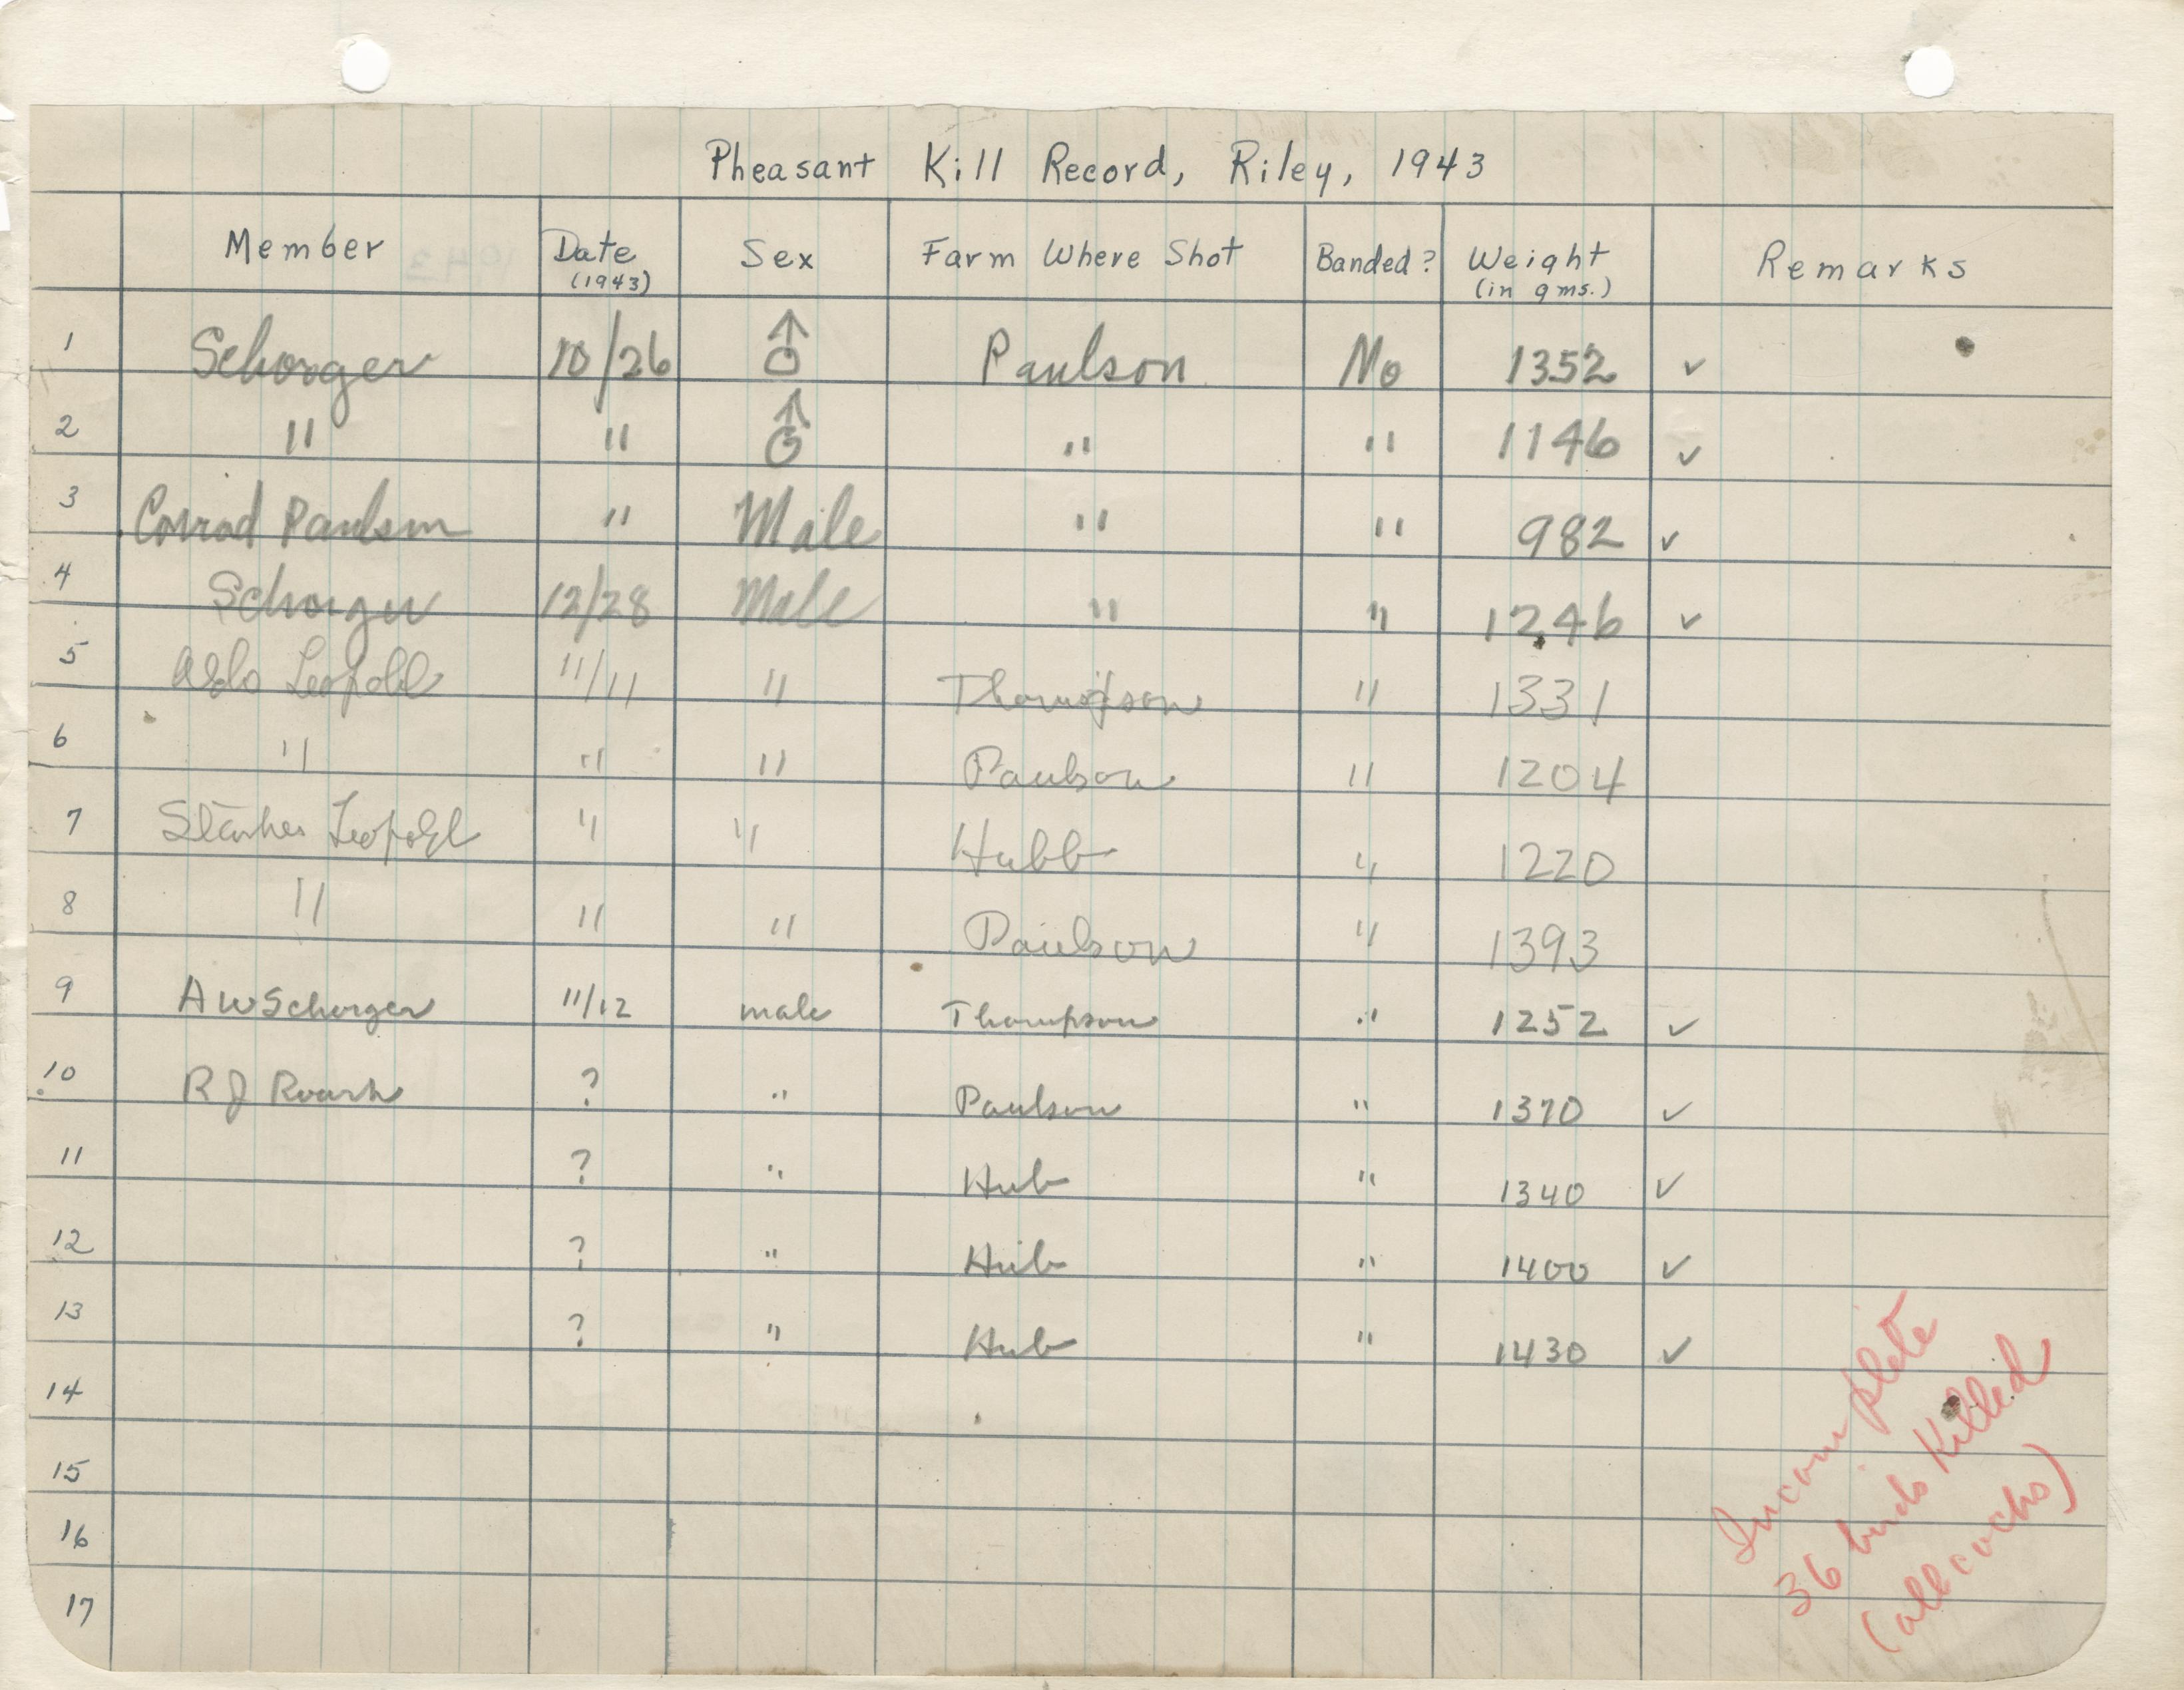 Pheasant Kill Record, Riley, 1943
Member Date (1943) Sex Farm Where Shot Banded? Weight (in gms.) Remarks
1 Schorger 10/26 ♂ Paulson No 1352 ✓
2 " " ♂ " " 1146 ✓
3 Conrad Paulson " Male " " 982 ✓
4 Schorger 12/28 Male " " 1246 ✓
5 Aldo Leopold 11/11 " Thompson " 1331
6 " " " Paulson " 1204
7 Starker Leopold " " Hubb " 1220
8 " " " Paulson " 1393
9 A W Schorger 11/12 male Thompson " 1252 ✓
10 R J Roark ? " Paulson " 1370 ✓
11 ? " Hub " 1340 ✓
12 ? " Hub " 1400 ✓
13 ? " Hub " 1430 ✓
14
15
16
17
Incomplete
36 birds killed
(all cocks)